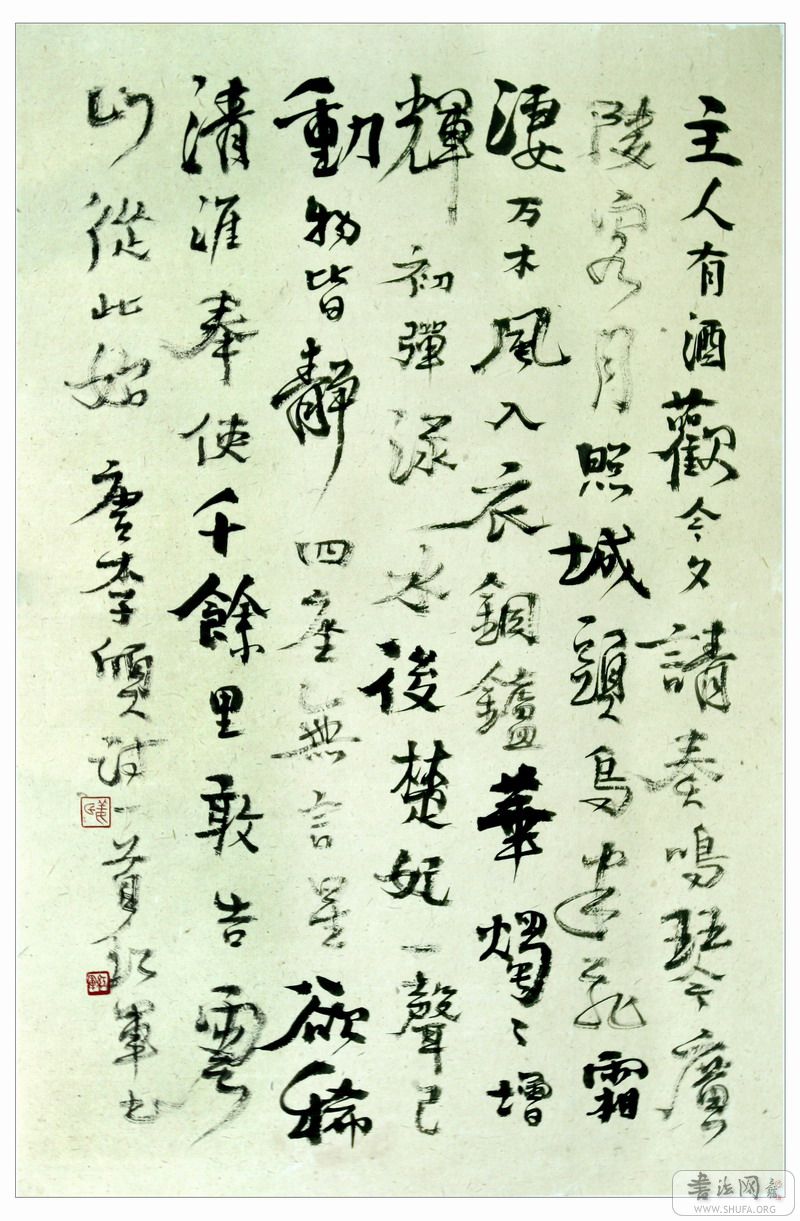 主人有酒歡今夕請奏鳴琴廣
陵客月照城頭烏半飛霜
淒万木風入衣銅鑪華燭〻增
輝初彈淥水後楚妃一聲已
動物皆靜四座無言星欲稀
清淮奉使千餘里敢告雲
山從此始 唐李頎诗一首 軍书
书法网
WWW.SHUFA.ORG